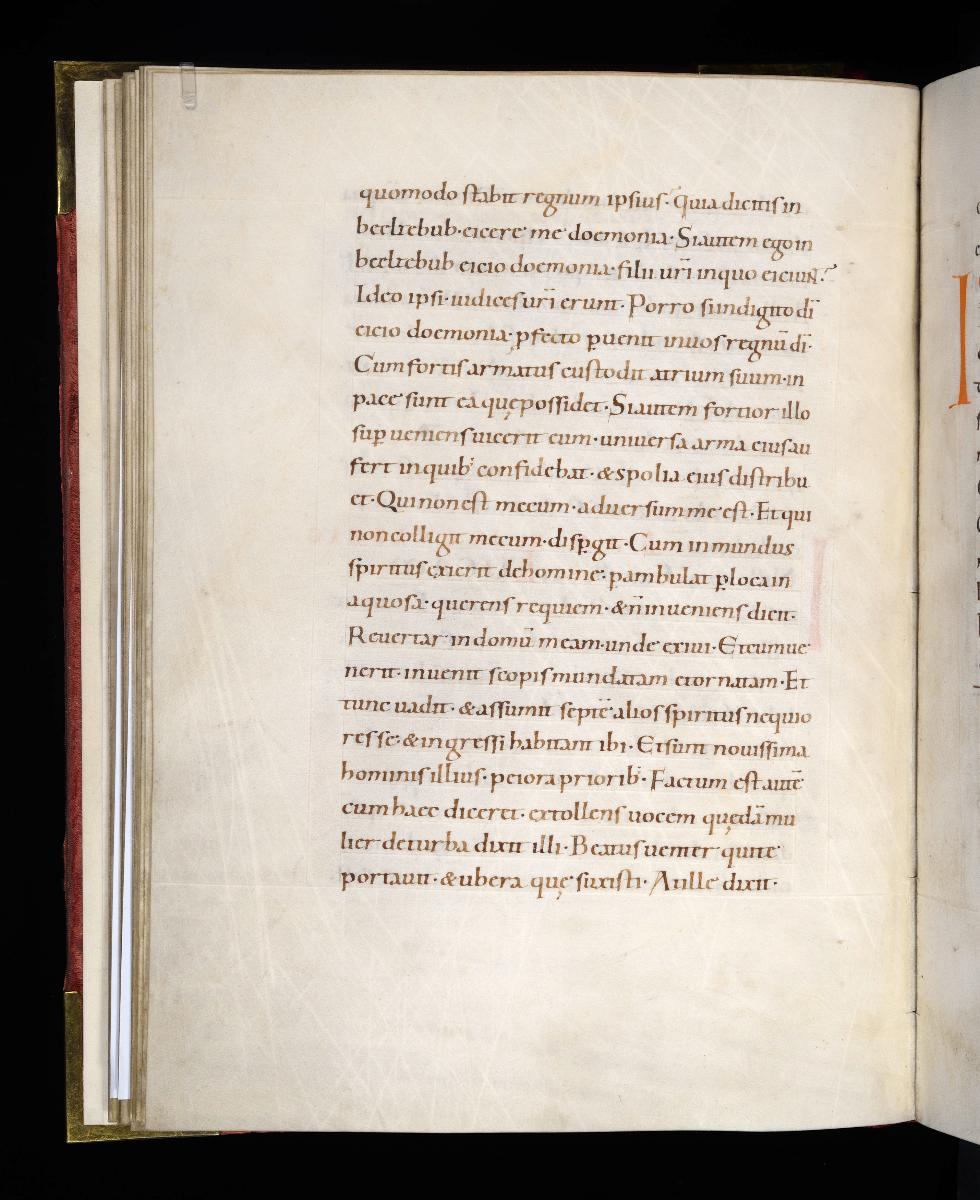 quomodo stabit regnum ipsius· quia dicitis in
beelzebub· eicere me doemonia· Si autem ego in
beelzebub eicio doemonia· filii ur̄i in quo eiciunt?
Ideo ipsi· iudices ur̄i erunt· Porro si in digito dī
eicio doemonia· ꝓfecto ꝑuenit in uos regnū dī·
Cum fortis armatus custodit atrium suum· in
pace sunt ea quę possidet· Si autem fortior illo
suꝑ ueniens uicerit eum· uniuersa arma eius au
fert in quib; confidebat· & spolia eius distribu
et· Qui non est mecum· aduersum me est· Et qui
non colligit mecum· disꝑgit· Cum inmundus
spiritus exierit de homine· ꝑambulat ꝑ loca in
aquosa· querens requiem· & n̄ inueniens dicit·
Reuertar in domū meam· unde exiui· Et cum ue
nerit· inuenit scopis mundatam et ornatam· Et
tunc uadit· & assumit septē alios spiritus nequio
res se· & ingressi habitant ibi· Et sunt nouissima
hominis illius· peiora priorib;· Factum est autē
cum haec diceret· extollens uocem quędā mu
lier de turba dixit illi· Beatus uenter qui te
portauit· & ubera quę suxisti· At ille dixit·